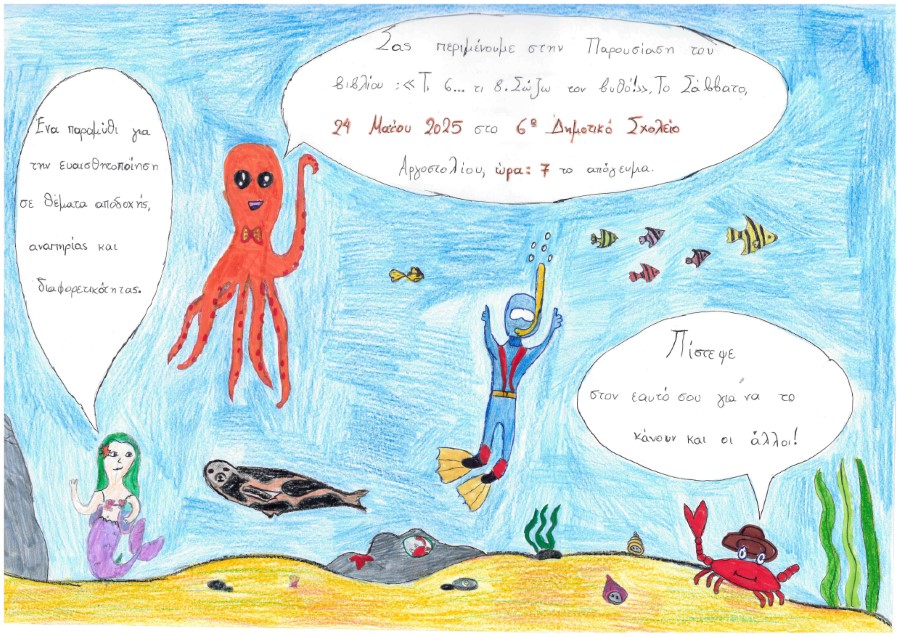 Σας περιμένουμε στην Παρουσίαση του
βιβλίου :«Τι 6... τι 8. Σώζω τον βυθό!». Το Σάββατο,
24 Μαΐου 2025 στο 6º Δημοτικό Σχολείο
Αργοστολίου, ώρα: 7 το απόγευμα.
Ένα παραμύθι για
την ευαισθητοποίηση
σε θέματα αποδοχής,
αναπηρίας και
διαφορετικότητας.
Πίστεψε
στον εαυτό σου για να το
κάνουν και οι άλλοι!